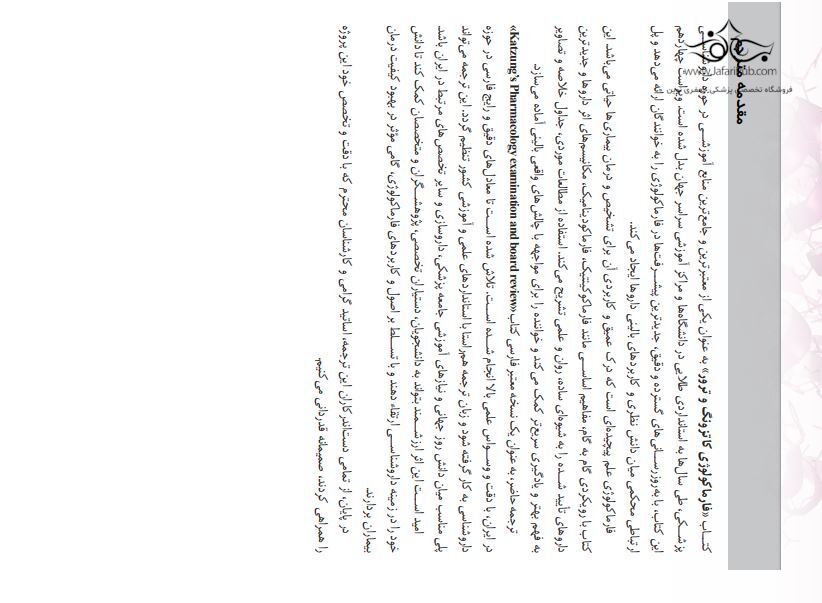 مقدمه مترجم
www.Jafarilab.com
فروشگاه تخصصی پزشکی جعفری نوین
کتـــاب «فارماکولوژی کاتزونگ و ترور» به عنوان یکی از معتبرترین و جامع‌ترین منابع آموزشـــی در حوزه داروشناســـی
پزشـــکی، طی سال‌ها به استانداردی طلایی در دانشگاه‌ها و مراکز آموزشی سراسر جهان بدل شده است. ویراست چهاردهم
این کتاب، با به‌روزرســـانی‌های گسترده و دقیق، جدیدترین پیشـــرفت‌ها در فارماکولوژی را به خوانندگان ارائه می‌دهد و پل
ارتباطی محکمی میان دانش نظری و کاربردهای بالینی داروها ایجاد می‌کند.
فارماکولوژی علم پیچیده‌ای است که درک عمیق و کاربردی آن برای تشخیص و درمان بیماری‌ها حیاتی می‌باشد. این
کتاب با رویکردی گام به گام، مفاهیم اساســـی مانند فارماکوکینتیک، فارماکودینامیک، مکانیسم‌های اثر داروها و جدیدترین
داروهای تأیید شـــده را به شیوه‌ای ساده، روان و علمی تشریح می‌کند. استفاده از مطالعات موردی، جداول خلاصه و تصاویر
به فهم بهتر و یادگیری سریع‌تر کمک می‌کند و خواننده را برای مواجهه با چالش‌های واقعی بالینی آماده می‌سازد.
ترجمه حاضر، به عنوان یک نسخه معتبر فارسی کتاب «Katzung's Pharmacology examination and board review»
در ایران، با دقت و وســـواس علمی بالا انجام شـــده اســـت. تلاش شده اســـت تا معادل‌های دقیق و رایج فارسی در حوزه
داروشناسی به کار گرفته شود و زبان ترجمه هم‌راستا با استانداردهای علمی و آموزشی کشور تنظیم گردد. این ترجمه می‌تواند
پلی مناسب میان دانش روز جهانی و نیازهای آموزشی جامعه پزشکی، داروسازی و سایر تخصص‌های مرتبط در ایران باشد.
امید اســـت این اثر ارزشـــمند بتواند به دانشجویان، دستیاران تخصصی، پژوهشـــگران و متخصصان کمک کند تا دانش
خود را در زمینه داروشناســـی ارتقاء دهند و با تســـلط بر اصول و کاربردهای فارماکولوژی، گامی مؤثر در بهبود کیفیت درمان
بیماران بردارند.
در پایان، از تمامی دست‌اندرکاران این ترجمه، اساتید گرامی و کارشناسان محترم که با دقت و تخصص خود این پروژه
را همراهی کردند، صمیمانه قدردانی می‌کنیم.